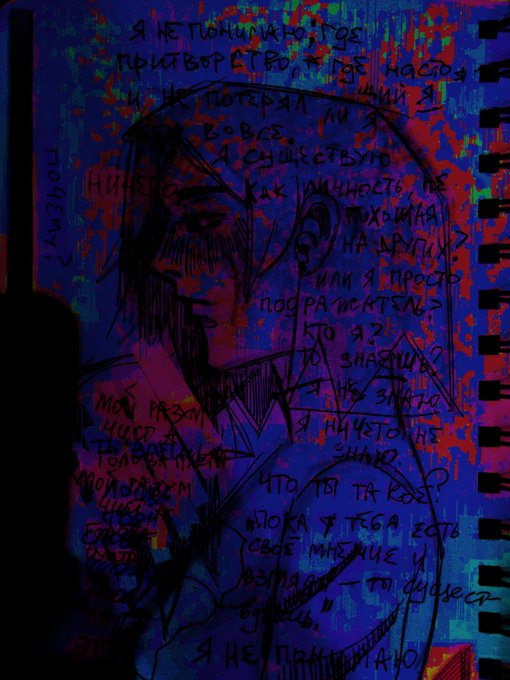 Я НЕ ПОНИМАЮ, ГДЕ
ПРИТВОРСТВО, А ГДЕ НАСТОЯ-
ЩИЙ Я
И НЕ ПОТЕРЯЛ ЛИ Я
ВОВСЕ.
Я СУЩЕСТВУЮ
КАК ЛИЧНОСТЬ, НЕ
ПОХОЖАЯ
НА ДРУГИХ?
ИЛИ Я ПРОСТО
ПОДРАЖАТЕЛЬ?
КТО Я?
ТЫ ЗНАЕШЬ?
Я НЕ ЗНАЮ
Я НИЧЕГО НЕ
ЗНАЮ.
ЧТО ТЫ ТАКОЕ?
"ПОКА У ТЕБЯ ЕСТЬ
СВОЁ МНЕНИЕ И
ВЗГЛЯД — ТЫ СУЩЕСТ-
ВУЕШЬ."
Я НЕ ПОНИМАЮ
ПОЧЕМУ?
НИЧЕГО
МОЙ РАЗУМ
ЧИСТ А
МОЙ РАЗУМ